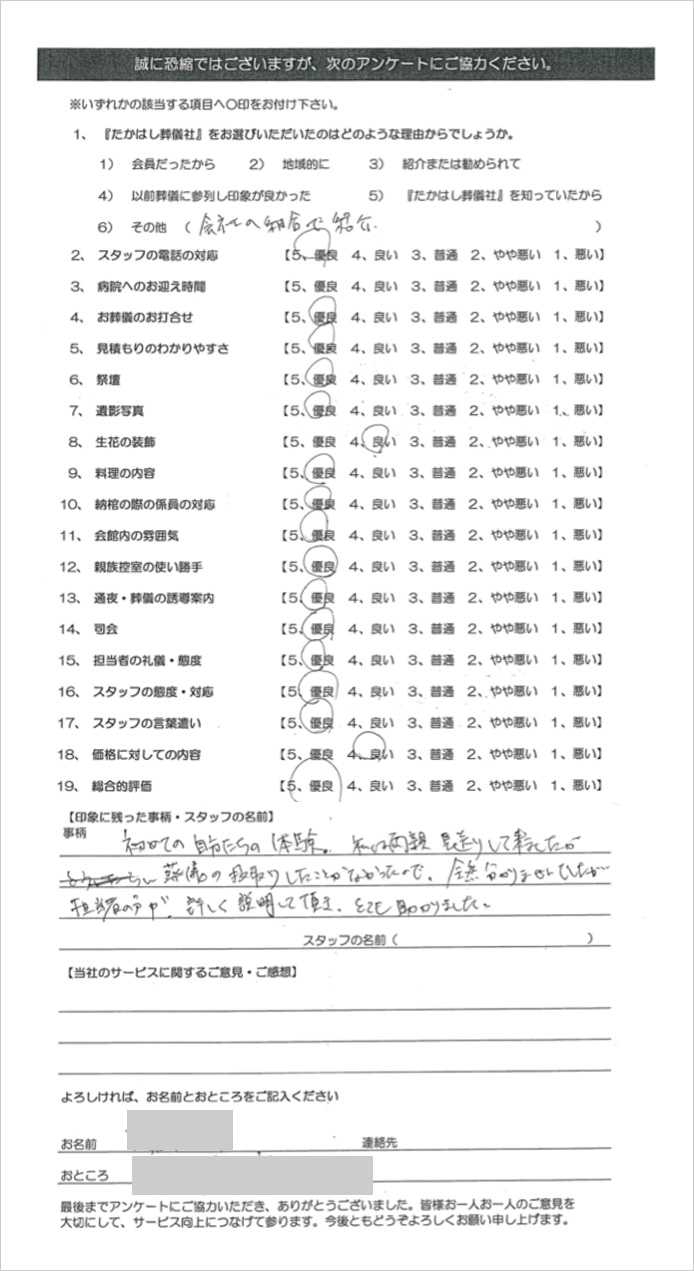 誠に恐縮ではございますが、次のアンケートにご協力ください。
※いずれかの該当する項目へ〇印をお付け下さい。
1、『たかはし葬儀社』をお選びいただいたのはどのような理由からでしょうか。
1） 会員だったから 2） 地域的に 3） 紹介または勧められて
4） 以前葬儀に参列し印象が良かった 5） 『たかはし葬儀社』を知っていたから
6） その他 （会社への組合で紹介.）
2、 スタッフの電話の対応 【5、優良 4、良い 3、普通 2、やや悪い 1、悪い】
3、 病院へのお迎え時間 【5、優良 4、良い 3、普通 2、やや悪い 1、悪い】
4、 お葬儀のお打合せ 【5、優良 4、良い 3、普通 2、やや悪い 1、悪い】
5、 見積もりのわかりやすさ 【5、優良 4、良い 3、普通 2、やや悪い 1、悪い】
6、 祭壇 【5、優良 4、良い 3、普通 2、やや悪い 1、悪い】
7、 遺影写真 【5、優良 4、良い 3、普通 2、やや悪い 1、悪い】
8、 生花の装飾 【5、優良 4、良い 3、普通 2、やや悪い 1、悪い】
9、 料理の内容 【5、優良 4、良い 3、普通 2、やや悪い 1、悪い】
10、 納棺の際の係員の対応 【5、優良 4、良い 3、普通 2、やや悪い 1、悪い】
11、 会館内の雰囲気 【5、優良 4、良い 3、普通 2、やや悪い 1、悪い】
12、 親族控室の使い勝手 【5、優良 4、良い 3、普通 2、やや悪い 1、悪い】
13、 通夜・葬儀の誘導案内 【5、優良 4、良い 3、普通 2、やや悪い 1、悪い】
14、 司会 【5、優良 4、良い 3、普通 2、やや悪い 1、悪い】
15、 担当者の礼儀・態度 【5、優良 4、良い 3、普通 2、やや悪い 1、悪い】
16、 スタッフの態度・対応 【5、優良 4、良い 3、普通 2、やや悪い 1、悪い】
17、 スタッフの言葉遣い 【5、優良 4、良い 3、普通 2、やや悪い 1、悪い】
18、 価格に対しての内容 【5、優良 4、良い 3、普通 2、やや悪い 1、悪い】
19、 総合的評価 【5、優良 4、良い 3、普通 2、やや悪い 1、悪い】
【印象に残った事柄・スタッフの名前】
事柄 初めての自分たちの体験。私は両親見送りして来ましたが
葬儀の段取りしたことがなかったので、全然分かりませんでしたが
担当者の方が、詳しく説明して頂き、とても助かりました。
スタッフの名前（ ）
【当社のサービスに関するご意見・ご感想】
よろしければ、お名前とおところをご記入ください
お名前 連絡先
おところ
最後までアンケートにご協力いただき、ありがとうございました。皆様お一人お一人のご意見を
大切にして、サービス向上につなげて参ります。今後ともどうぞよろしくお願い申し上げます。